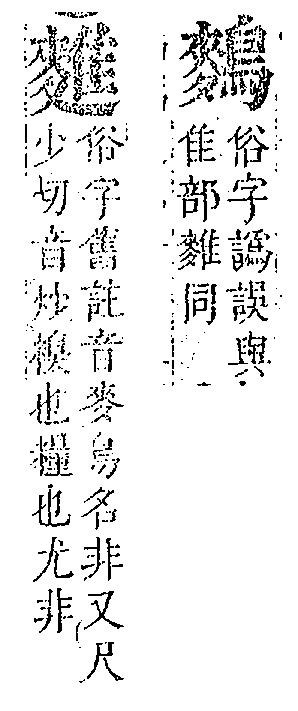 俗字譌誤與
隹部同
俗字舊註音麥鳥名非又尺
少切音炒糗也糧也尤非